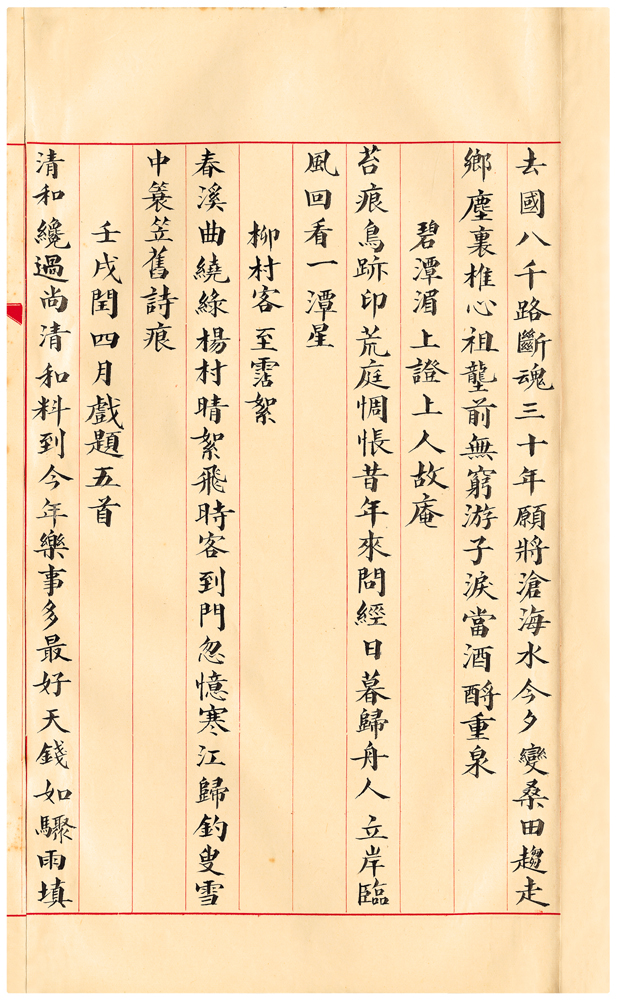 去國八千路斷魂三十年願將滄海水今夕變桑田趨走
鄉塵裏椎心祖壟前無窮游子淚當酒酹重泉
碧潭湄上證上人故庵
苔痕鳥跡印荒庭惆悵昔年來問經日暮歸舟人立岸臨
風回看一潭星
柳村客至霑絮
春溪曲繞綠楊村晴絮飛時客到門忽憶寒江歸釣叟雪
中簑笠舊詩痕
壬戌閏四月戲題五首
清和纔過尚清和料到今年樂事多最好天錢如驟雨填